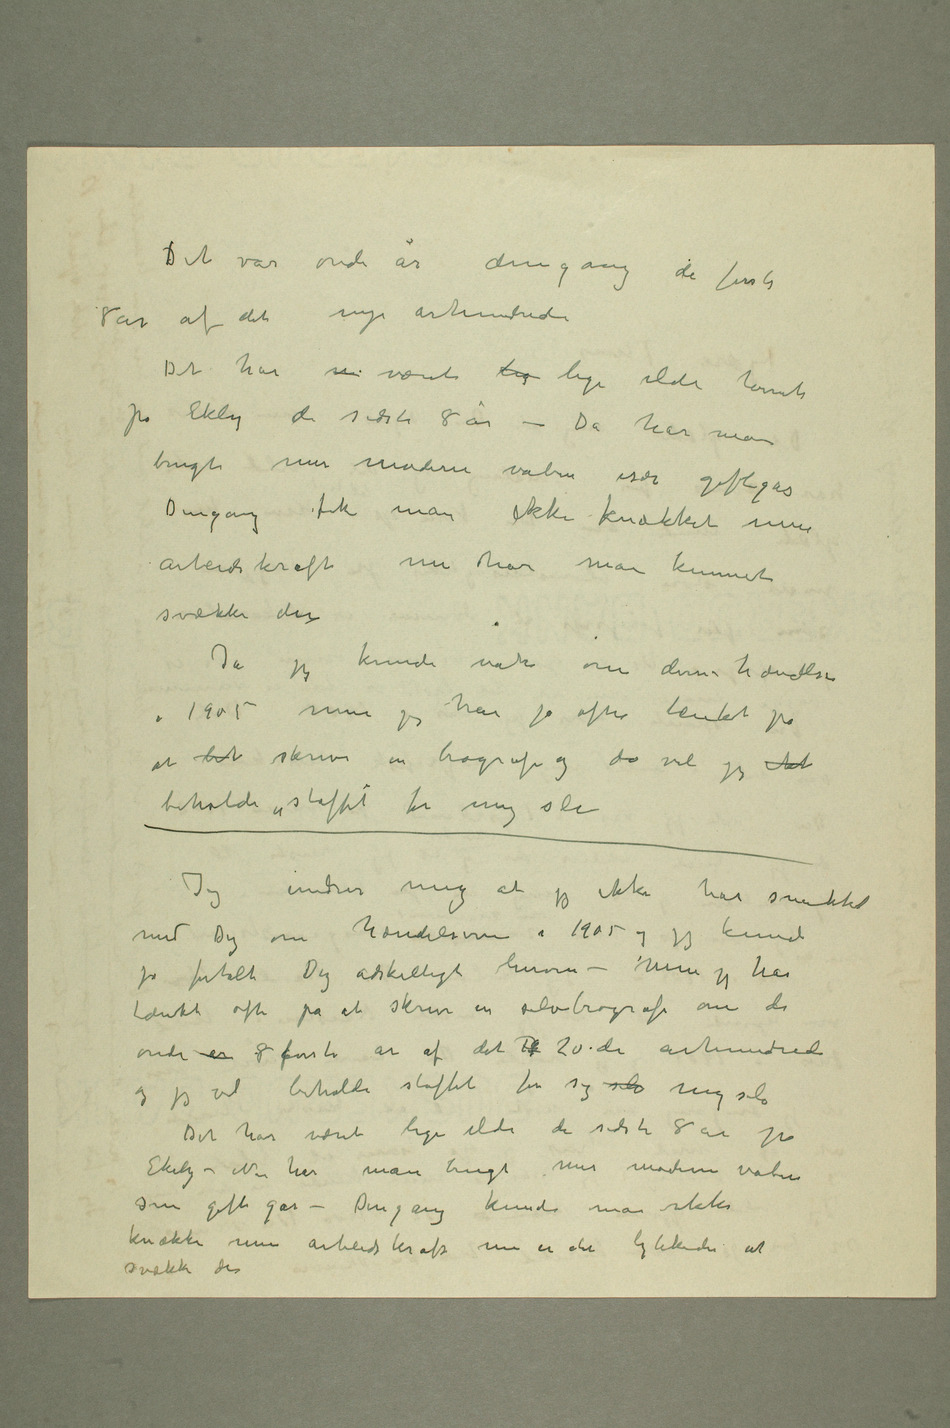 Det var onde år dengang de første
8 år af det nye århundrede
Det har nu været lig lige ilde tonet
på Ekely de sidste 8 år – Da har man
brugt mer moderne våben især giftgas
Dengang fik man ikke knækket min
arbeidskraft nu har man kunnet
svække den
Ja jeg kunde vidne om denne hændelse
i 1905 men jeg har jo ofte tænkt på
at skrive en biografi og da vil jeg
beholde „stoffet" for mig selv
Jeg indrer mig at jeg ikke har snakket
med Dig om hændelserne i 1905 og jeg kunde
jo fortalt Dig adskilligt herom – Men jeg har
tænkt ofte på at skrive en selvbiografi om de
onde er 8 første år af det 20.de århundrede
og jeg vil beholde stoffet for sig selv mig selv
Det har været lige ilde de sidste 8 år på
Ekely – Nu har man brugt mer moderne våben
som gift gas – Dengang kunde man ikke
knække min arbeidskraft nu er det lykkedes at
svække den